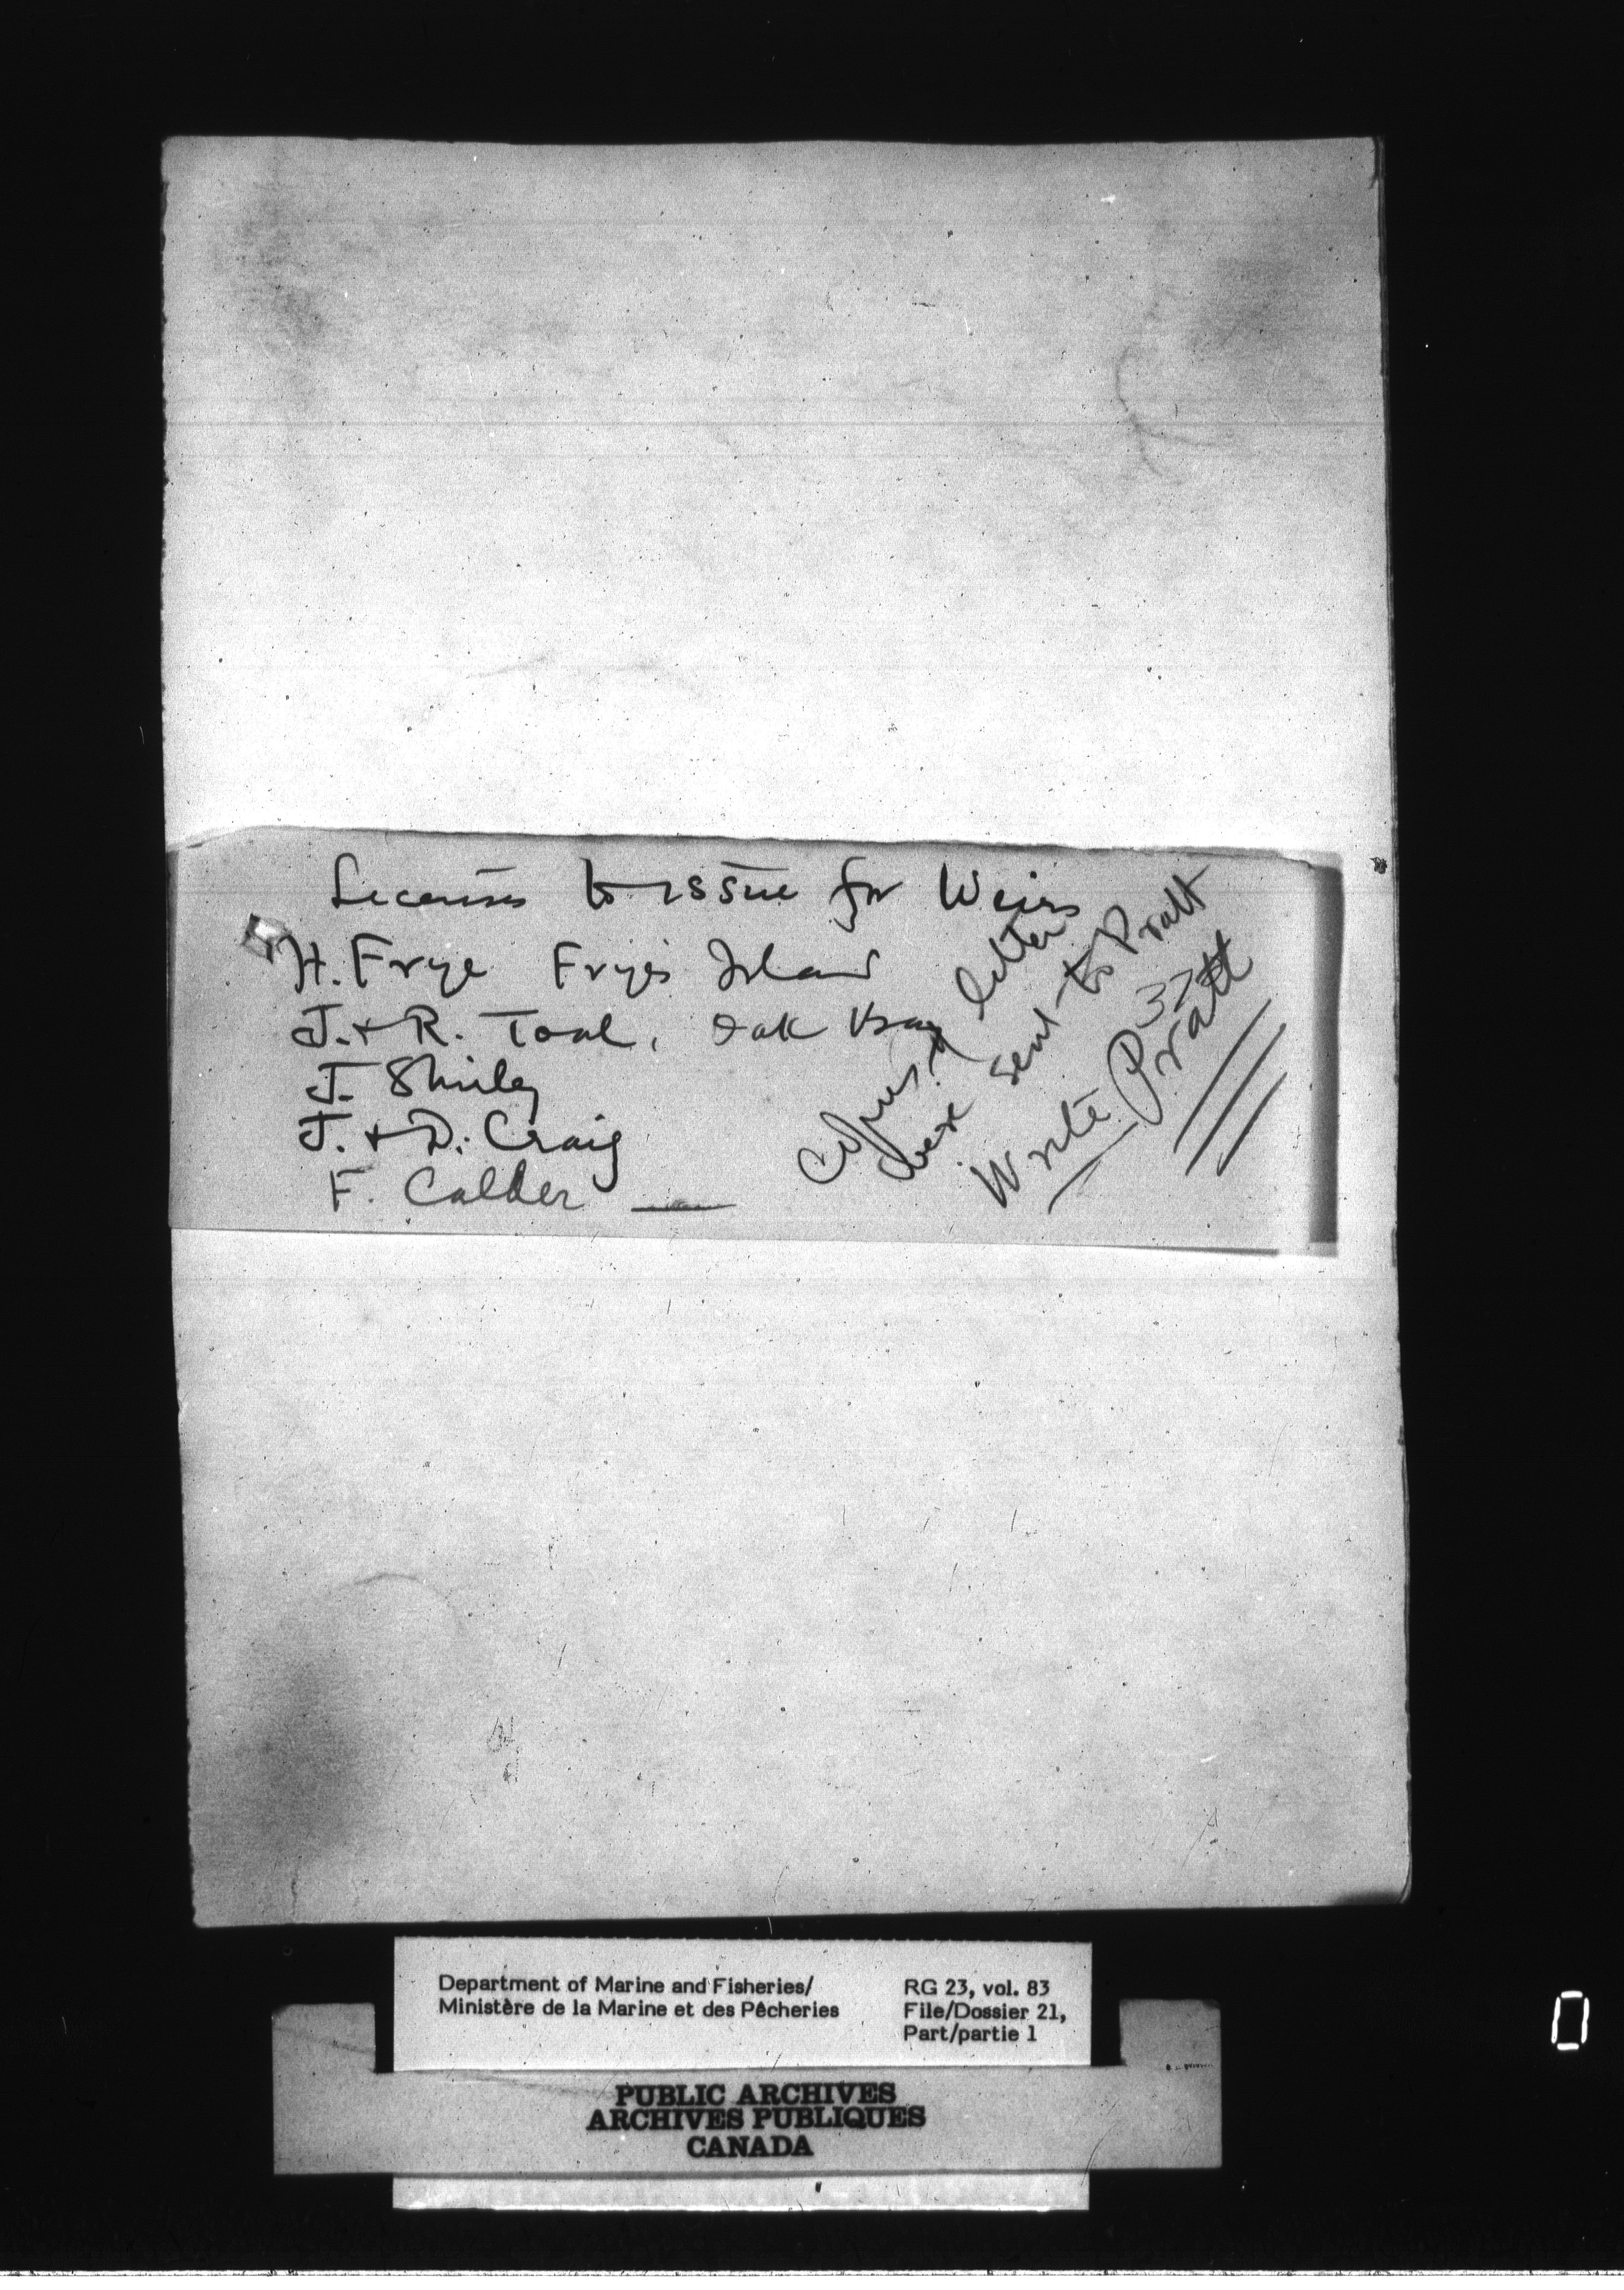 Licenses to issue for Weirs
H. Frye Frye's Island
J. & R. Toal, Oak Bay
J. Shirley
J. & D. Craig
F. Calder
Copies of letter
here sent to Pratt
Write Pratt
Department of Marine and Fisheries/
Ministère de la Marine et des Pêcheries
RG 23, vol. 83
File/Dossier 21,
Part/partie 1
PUBLIC ARCHIVES
ARCHIVES PUBLIQUES
CANADA
0